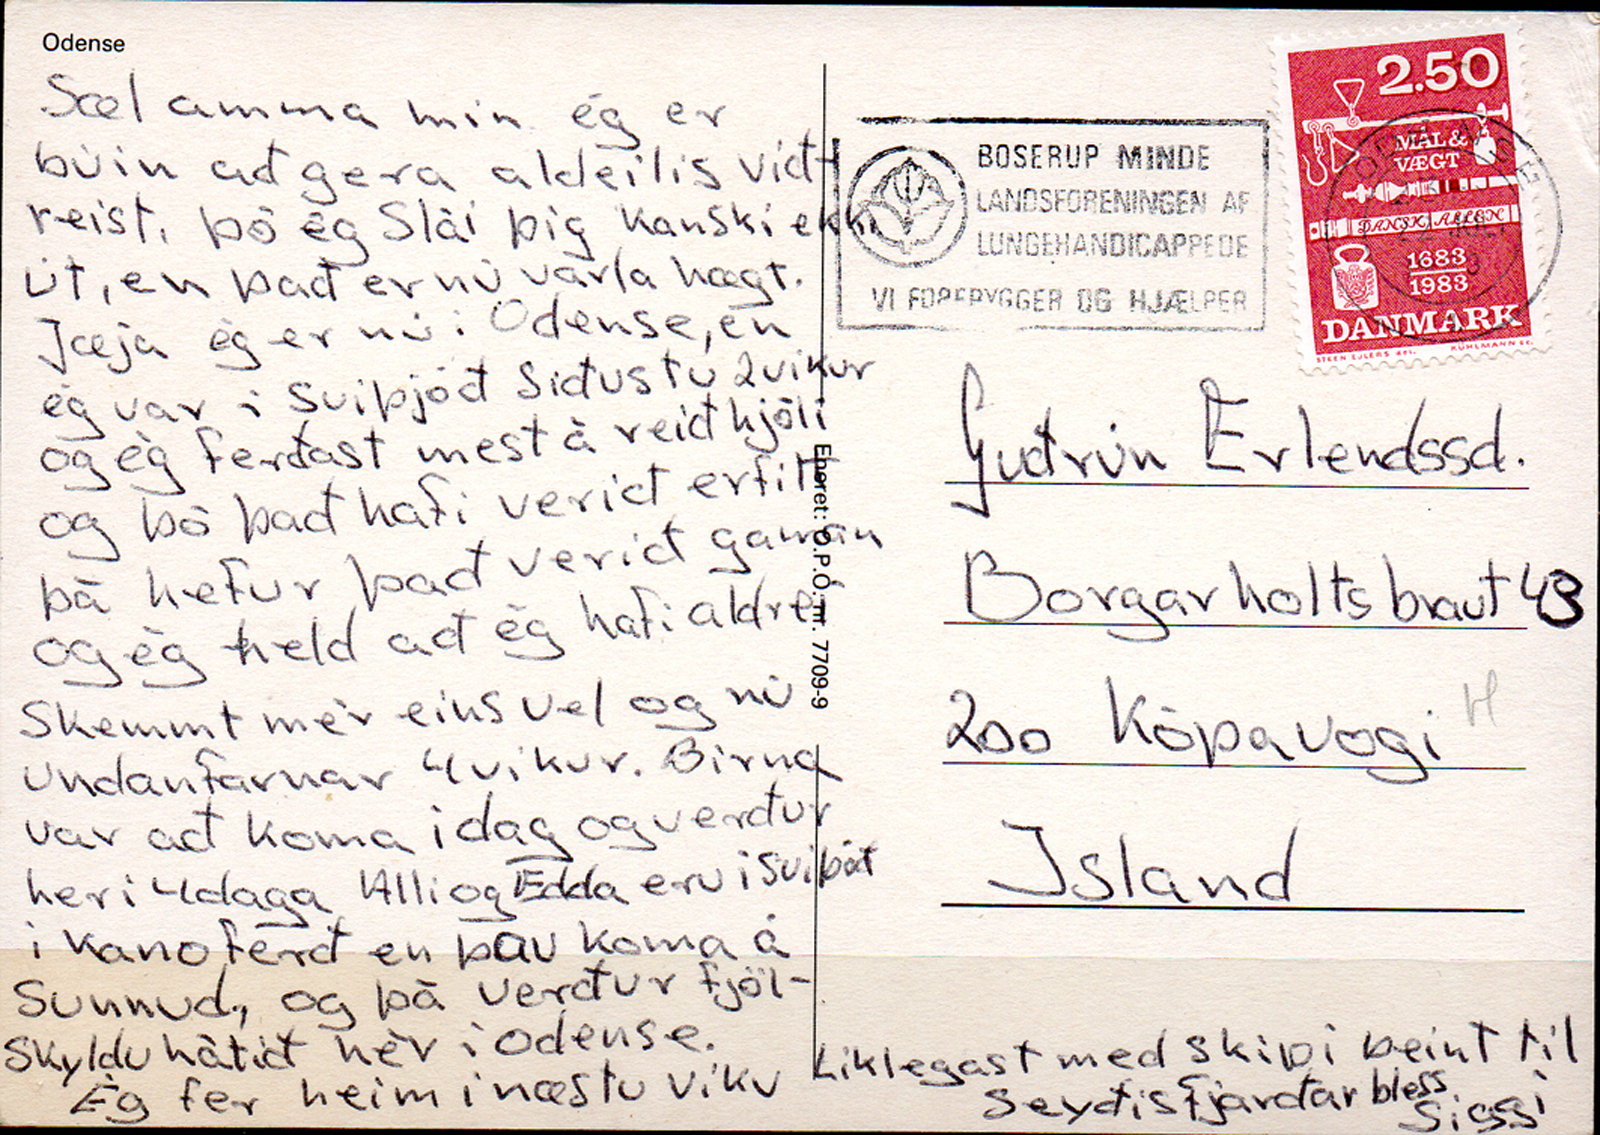 Odense
Sæl amma min ég er
búin að gera aldeilis við-
reist, þó ég Slái þig kanski ekki
út, en það er nú varla hægt.
Jæja ég er nú i Odense, en
ég var i Sviþjóð Siðustu 2 vikur
og ég ferðast mest á reiðhjóli
og þó það hafi verið erfitt
þá hefur það verið gaman
og ég held að ég hafi aldrei
Skemmt mér eins vel og nú
undanfarnar 4 vikur. Birna
var að koma i dag og verður
her i 4 daga Alli og Edda eru i Sviþóð
i Kanoferð en þau koma á
Sunnud., og þá verður fjöl-
Skyldu hátið hér i Odense.
Ég fer heim i næstu viku
Liklegast med skipi beint til
Seyðisfjarðar bless
Siggi
Eneret: O.P.O. nr. 7709-9
BOSERUP MINDE
LANDSFORENINGEN AF
LUNGEHANDICAPPEDE
VI FOREBYGGER OG HJÆLPER
2.50
MÅL &
VÆGT
DANSKE ALLEN
1683
1983
DANMARK
STEEN EJLERS del. KÜHLMANN sc.
Guðrún Erlendssd.
Borgarholtsbraut 43
200 Kópavogi
H
Island